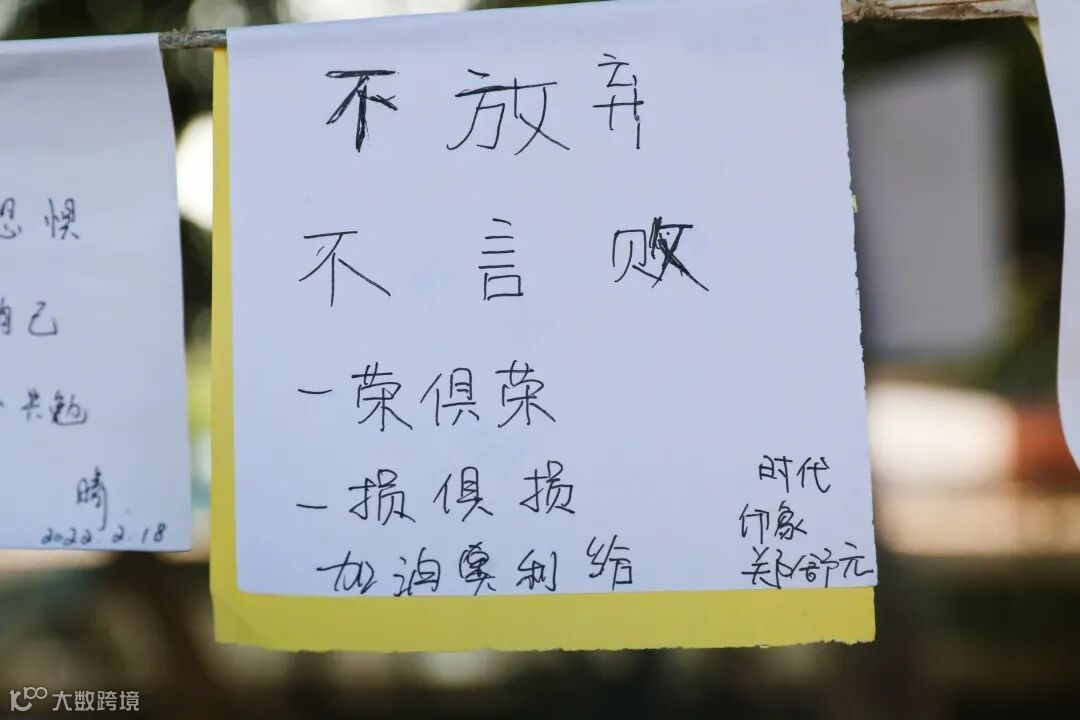 恐惧
自己
共勉
晴
2022.2.18
不放弃
不言败
一荣俱荣
一损俱损
加油奥利给
时代
印象
郑舒元
大数跨境